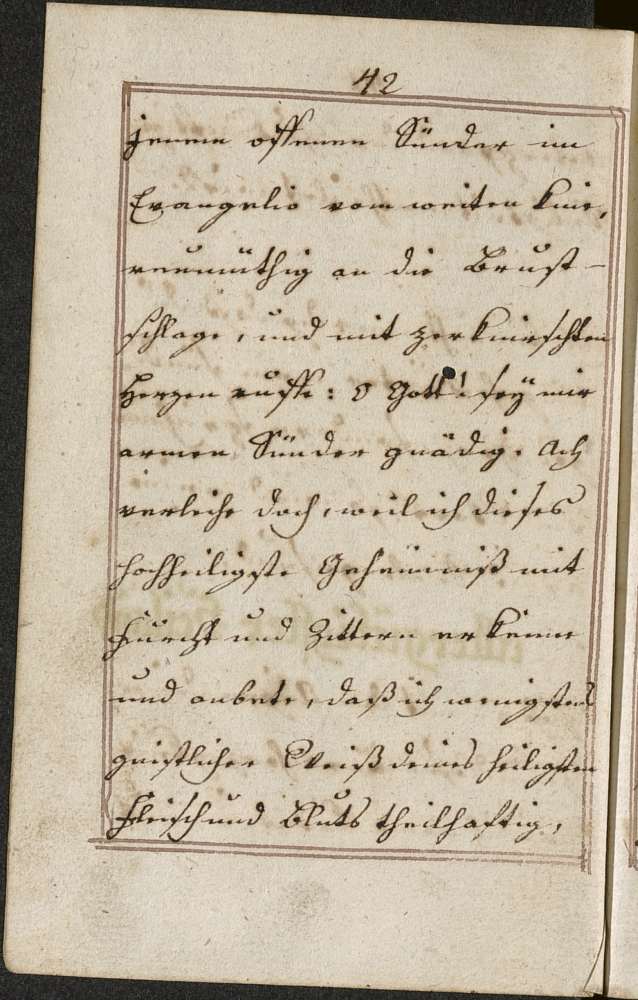 42
jenem offenen Sünder im
Evangelio vom weiten knie,
reumüthig an die Brust-
schlage, und mit zerknirschten
Herzen ruffe: O Gott! sey mir
armen Sünder gnädig. Ach
verleihe doch, weil ich dieses
hochheiligste Geheimniß mit
Furcht und Zittern erkenne
und anbete, daß ich wenigstens
geistlicher Weiß deines heiligsten
Fleisch und Bluts theilhaftig,